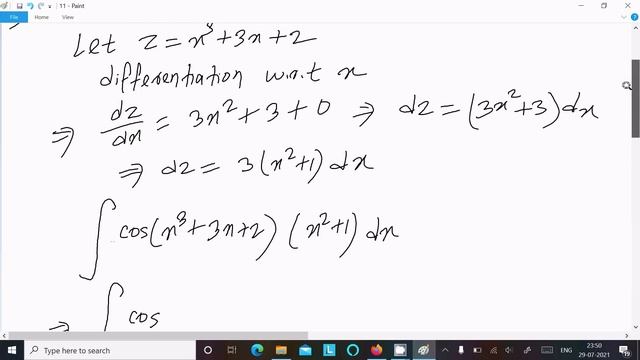 11 - Paint
File Home View
Let z = x³ + 3x + 2
differentiation w.r.t x
⇒ dz/dx = 3x² + 3 + 0 ⇒ dz = (3x² + 3) dx
⇒ dz = 3(x² + 1) dx
∫ cos(x³ + 3x + 2) (x² + 1) dx
⇒ ∫ cos
Type here to search
ENG
23:50
29-07-2021